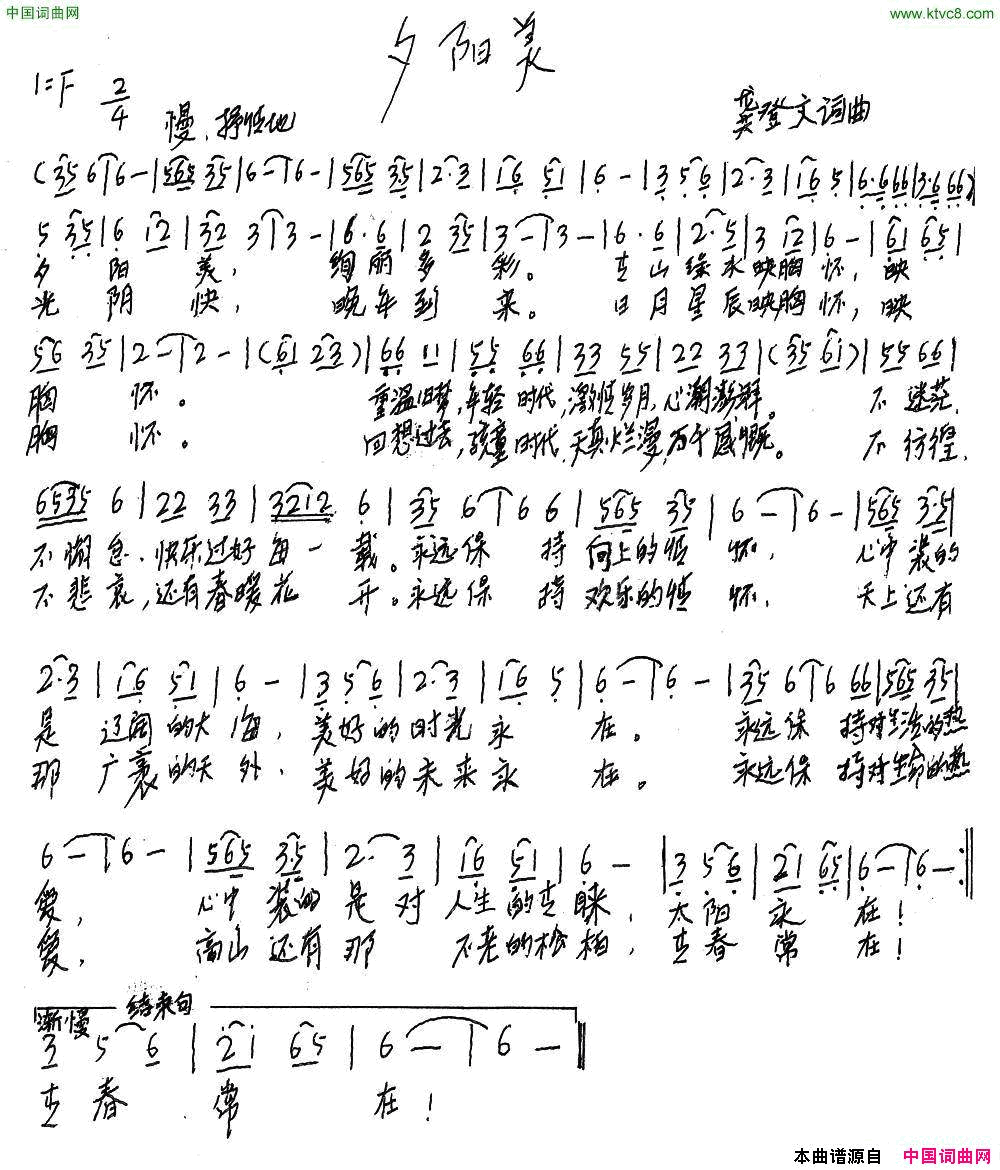 中国词曲网
www.ktvc8.com
夕阳美
1=F 2/4
慢、抒情地
龚登文词曲
(35 6 | 6 - | 565 35 | 6 - | 6 - | 565 35 | 2·3 | 16 51 | 6 - | 3 5·6 | 2·3 | 16 5 | 6·6 66 | 3·6 66)
5 35 | 6 12 | 32 3 | 3 - | 6·6 | 2 35 | 3 - | 3 - | 6·6 | 2·5 | 3 12 | 6 - | 61 65 |
夕阳美,绚丽多彩。青山绿水映胸怀,映
光阴快,晚年到来。日月星辰映胸怀,映
56 35 | 2 - | 2 - | (61 23) | 66 11 | 55 66 | 33 55 | 22 33 | (35 61) | 55 66 |
胸怀。重温旧梦,年轻时代,激情岁月,心潮澎湃。不迷茫,
胸怀。回想过去,孩童时代,天真烂漫,万千感慨。不彷徨,
6535 6 | 22 33 | 3212 6 | 35 6 | 6 6 | 565 35 | 6 - | 6 - | 565 3·5 |
不懈怠、快乐过好每一载。永远保持向上的情怀,心中装的
不悲哀,还有春暖花开。永远保持欢乐的情怀,天上还有
2·3 | 16 51 | 6 - | 3 5·6 | 2·3 | 16 5 | 6 - | 6 - | 35 6 | 6 66 | 565 35 |
是辽阔的大海,美好的时光永在。永远保持对生活的热
那广袤的天外,美好的未来永在。永远保持对生命的热
6 - | 6 - | 565 3·5 | 2· 3 | 16 51 | 6 - | 3 5·6 | 21 65 | 6 - | 6 - :||
爱,心中装的是对人生的青睐,太阳永在!
爱,高山还有那不老的松柏,青春常在!
渐慢 结束句
3 5 6 | 21 65 | 6 - | 6 - ||
青春常在!
本曲谱源自 中国词曲网